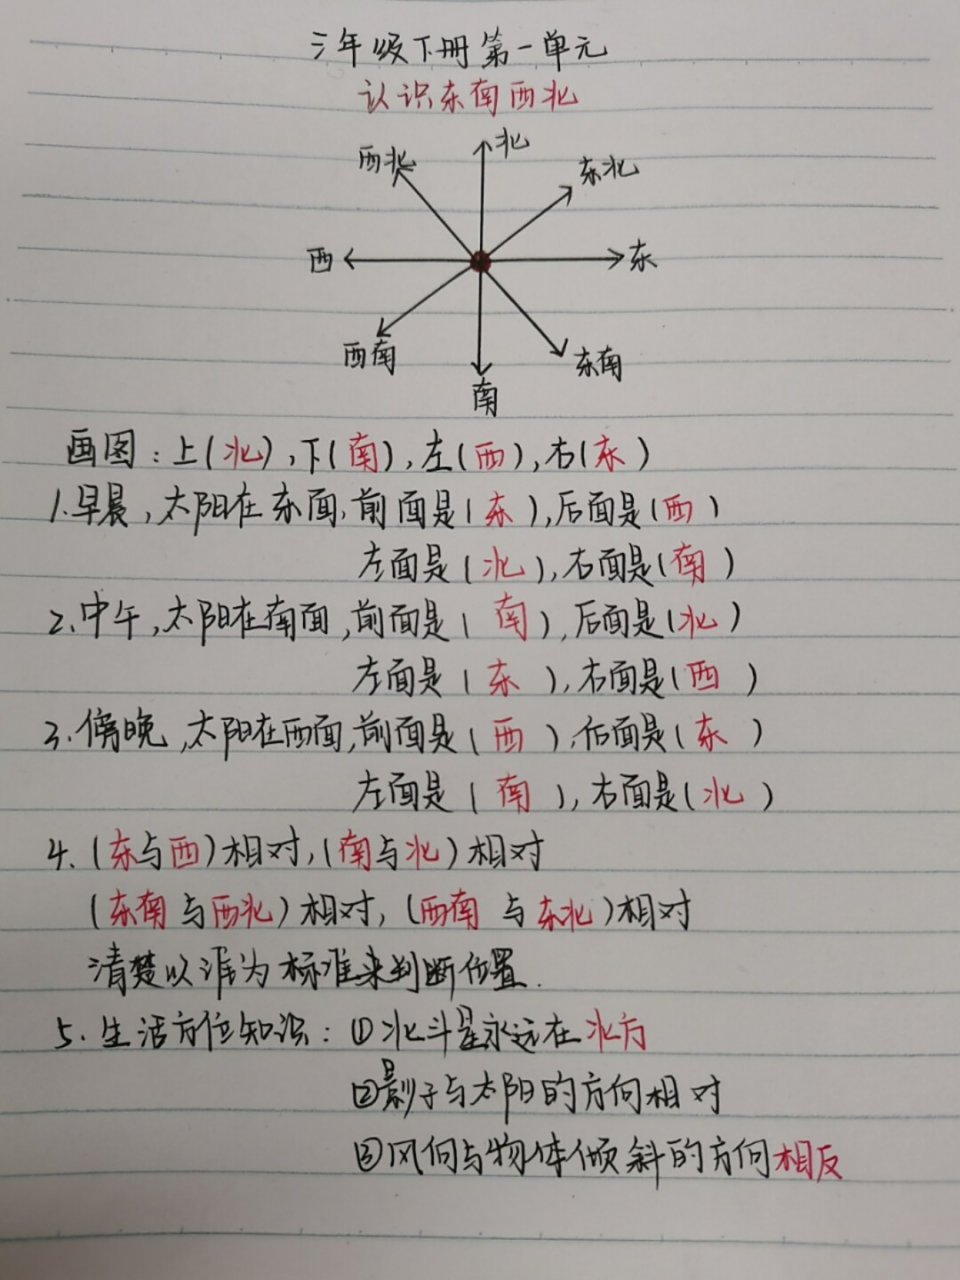 三年级下册第一单元
认识东南西北
北
西北
东北
西
东
西南
东南
南
画图:上(北),下(南),左(西),右(东)
1.早晨,太阳在东面,前面是(东),后面是(西)
左面是(北),右面是(南)
2.中午,太阳在南面,前面是(南),后面是(北)
左面是(东),右面是(西)
3.傍晚,太阳在西面,前面是(西),后面是(东)
左面是(南),右面是(北)
4.(东与西)相对,(南与北)相对
(东南与西北)相对,(西南与东北)相对
清楚以谁为标准来判断位置.
5.生活方位知识:①北斗星永远在北方
②影子与太阳的方向相对
③风向与物体倾斜的方向相反